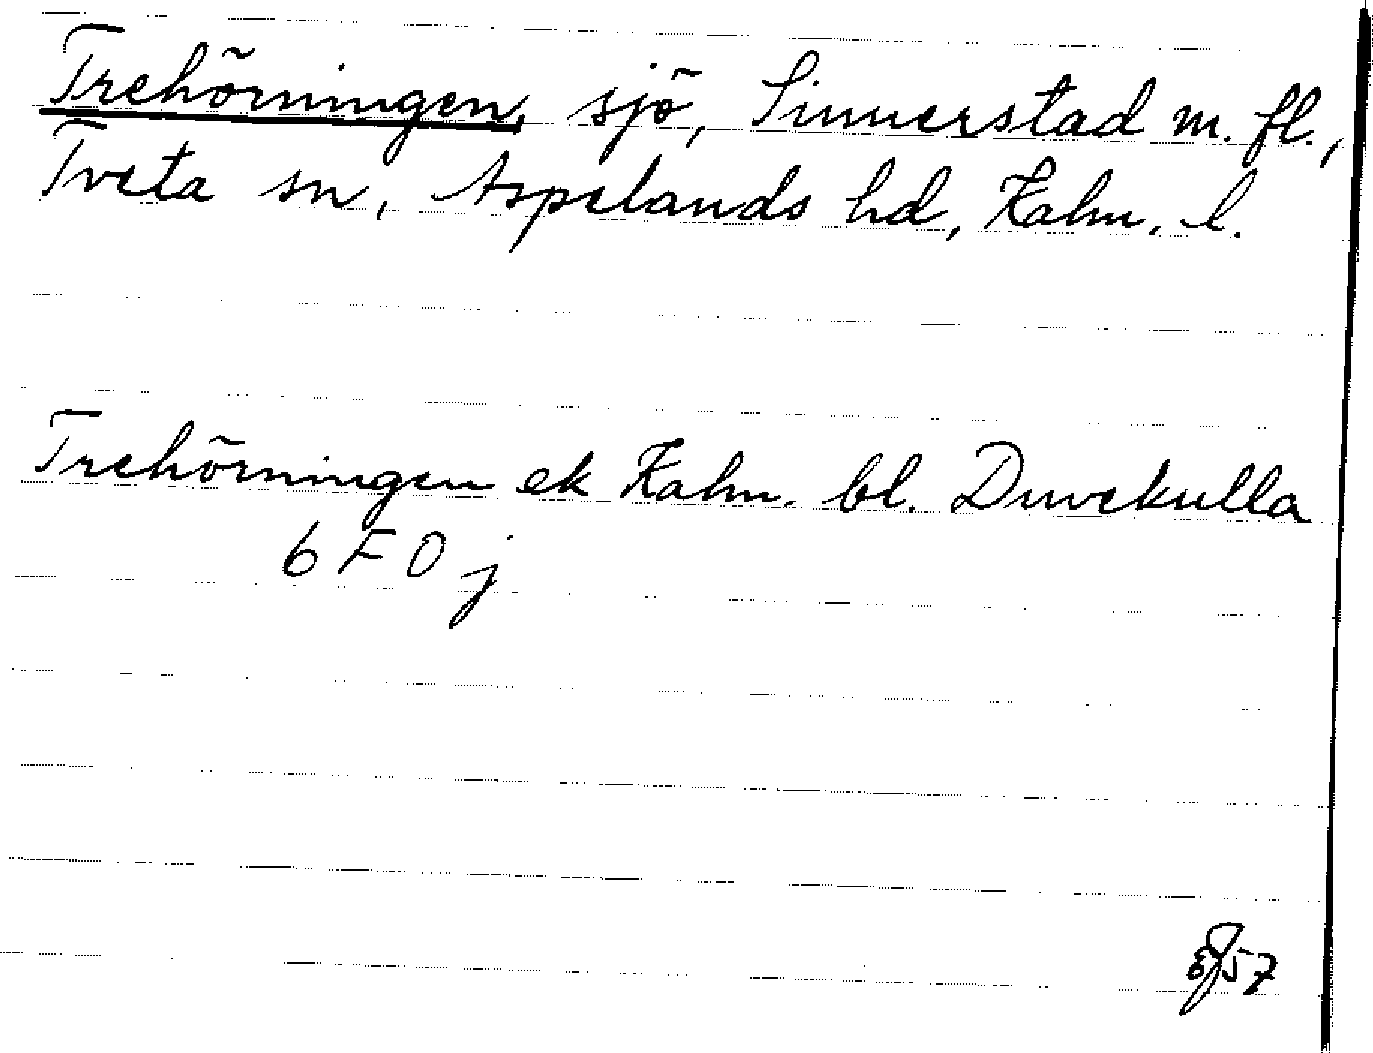 Trehörningen, sjö, Sinnerstad m. fl.,
Tveta sn, Aspelands hd, Kalm. l.
Trehörningen ek Kalm. bl. Duvekulla
6 F 0 j
57